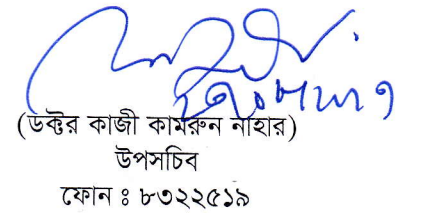 (ডক্টর কাজী কামরুন নাহার)
উপসচিব
ফোন ঃ ৮৩২২৫১৯